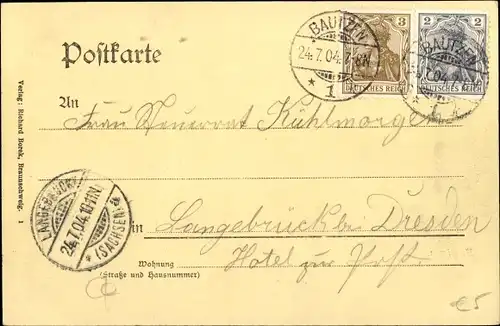 BAUTZEN
24.7.04.7-8N
* 1
3
DEUTSCHES REICH
2
DEUTSCHES REICH
BAUTZEN
7.04
Postkarte
Verlag: Richard Borek, Braunschweig. 1
An
Frau Neuwrat Kuhlmorgen
LANGEBRÜCK
24.7.04.10-11N
* (SACHSEN)
in Langebrück bei Dresden
Wohnung Hotel zur Post.
(Straße und Hausnummer)
€5